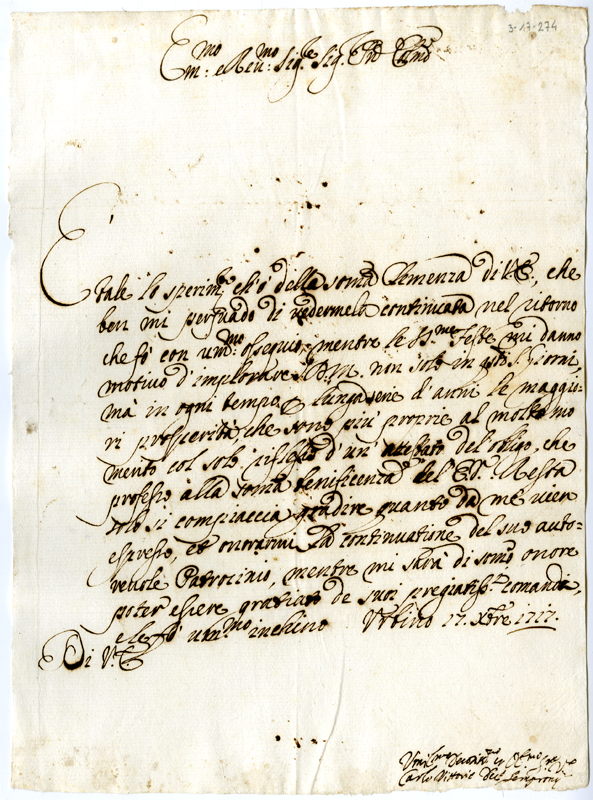 3-17-274
Em:mo e Reu:mo Sig:re Sig:re Pne Colmo
E tale lo sperim:to ch'ò della somma Clemenza di V.E., che
ben mi persuado di vedermela continuata nel ritorno
che fò con um:mo ossequio, mentre le SS.me feste mi danno
motivo d'implorare non solo in giorni,
mà in ogni tempo, e lunga serie d'anni le maggio-
ri prosperità, che sono più proprie al
mento col solo riflesso d'un attestato del obligo, che
professo alla somma benificenza dell' E.V. Resta
solo si compiaccia gradire quanto da me vien
espresso, et onorarmi la continuatione del suo auto-
reuole Patrocinio, mentre mi sarà di sommo onore
poter essere gratiato de suoi pregiatiss:i comandi,
e le fò um:mo inchino Urbino 17. Xbre 1717.
Di V.E.
Carlo Vittorio Semproni